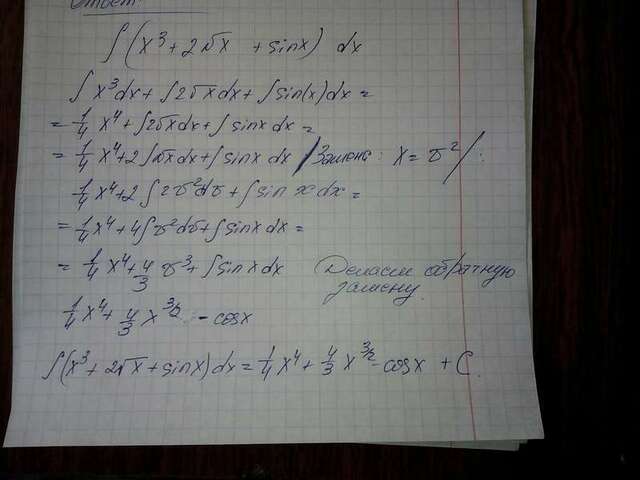 Ответ:
∫(x³ + 2√x + sinx) dx
∫x³dx + ∫2√x dx + ∫sin(x)dx =
= 1/4 x⁴ + ∫2√x dx + ∫sinx dx =
= 1/4 x⁴ + 2∫√x dx + ∫sinx dx /Замена: x = v²/:
1/4 x⁴ + 2∫2v²dv + ∫sin x dx =
= 1/4 x⁴ + 4∫v²dv + ∫sinx dx =
= 1/4 x⁴ + 4/3 v³ + ∫sinx dx Делаем обратную
замену.
1/4 x⁴ + 4/3 x^3/2 - cosx
∫(x³ + 2√x + sinx)dx = 1/4 x⁴ + 4/3 x^3/2 - cosx + C.